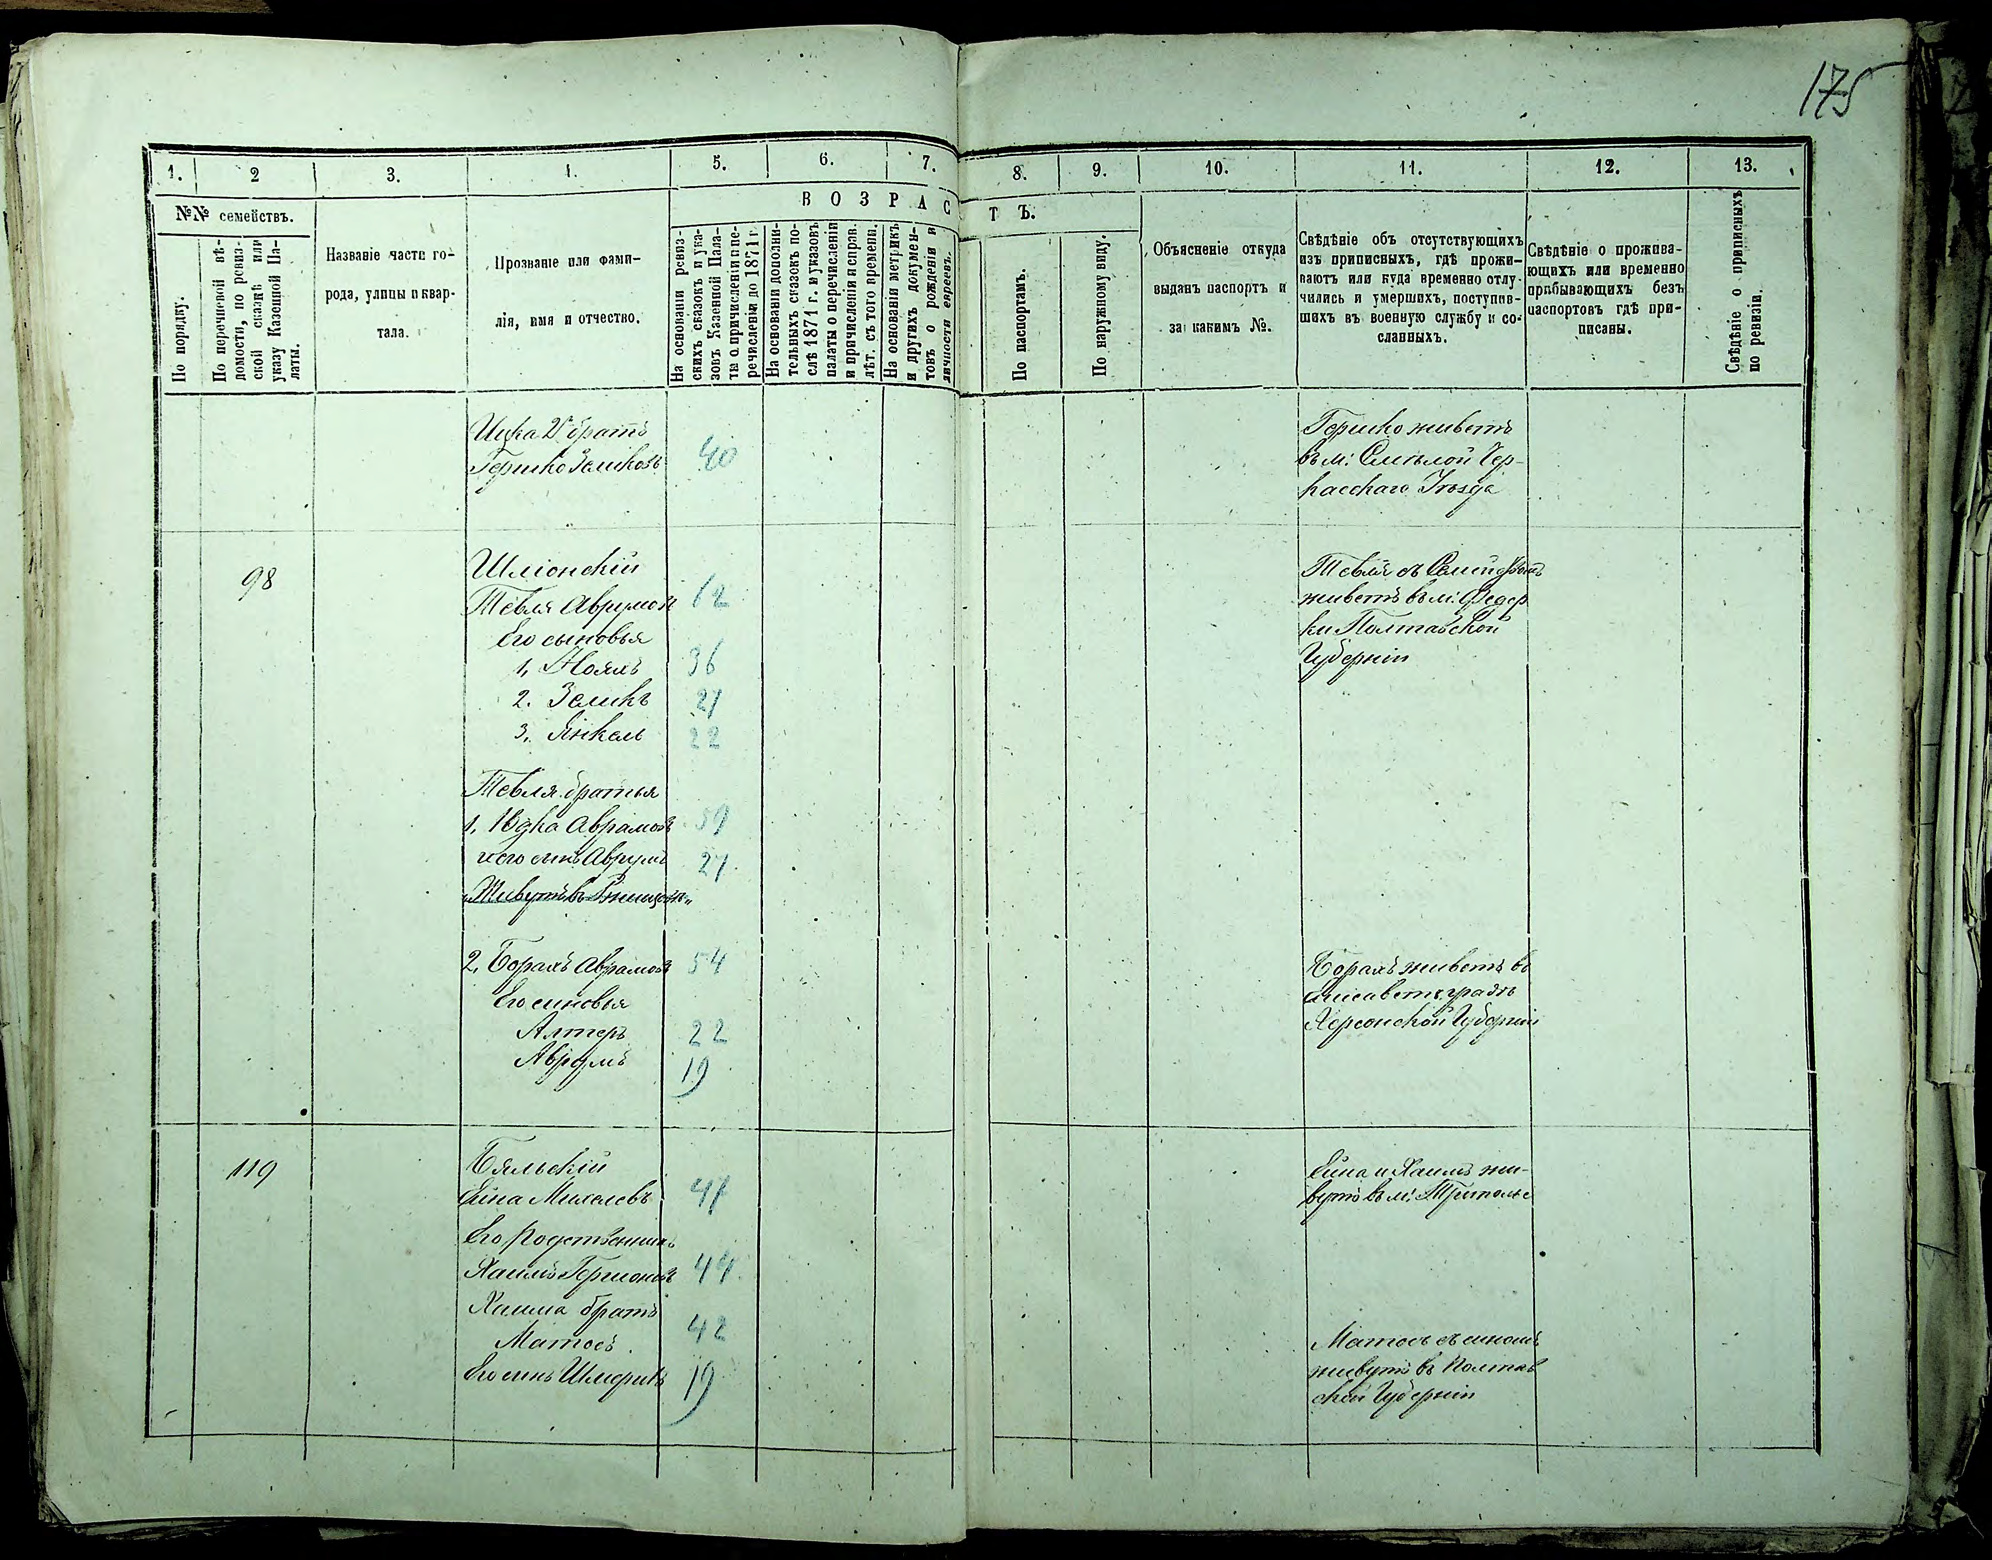 175
1. 2 3. 4. 5. 6. 7. 8. 9. 10. 11. 12. 13.
№№ семействъ.
В О З Р А С Т Ъ.
По порядку.
По перечневой вѣ-
домости, по ревиз-
ской сказкѣ или
указу Казенной Па-
латы.
Названіе части го-
рода, улицы и квар-
тала.
Прозваніе или фами-
лія, имя и отчество.
На основаніи ревиз-
скихъ сказокъ и ука-
зовъ Казенной Пала-
ты о причисленіи и пе-
речисленіи до 1871 г.
На основаніи дополни-
тельныхъ сказокъ по-
слѣ 1871 г. и указовъ
палаты о перечисленіи
и причисленіи и справ.
лѣт. съ того времени.
На основаніи метрикъ
и другихъ докумен-
товъ о рожденіи и
личности евреевъ.
По паспортамъ.
По наружному виду.
Объясненіе откуда
выданъ паспортъ и
за какимъ №.
Свѣдѣніе объ отсутствующихъ
изъ приписныхъ, гдѣ прожи-
ваютъ или куда временно отлу-
чились и умершихъ, поступив-
шихъ въ военную службу и со-
сланныхъ.
Свѣдѣніе о прожива-
ющихъ или временно
прибывающихъ безъ
паспортовъ гдѣ при-
писаны.
Свѣдѣніе о приписныхъ
по ревизіи.
Ицка 2й братъ
Гершко Зеликовъ 40
Гершко живетъ
въ м: Смѣлой Чер-
касскаго Уѣзда
98
Шліонскій
Тевля Аврумов 62
Его сыновья
1, 36
2. Зеликъ 27
3. Янкель 22
Тевля съ Семействомъ
живетъ въ м:
Полтавской
Губерніи
Тевля братья
1, Юдка Аврамовъ 59
и его сынъ Аврумъ 27
„Живутъ въ
2, Борахъ Аврамовъ 54
Его сыновья
Алтеръ 22
Аврумъ 19
Борахъ живетъ въ
Елисаветградѣ
Херсонской Губерніи
119
Бяльскій
Ейна Михелевъ 47
Его родственникъ
Хаимъ Гершоновъ 44
Хаима братъ
Матосъ 42
Его сынъ 19
Ейна и Хаимъ жи-
вутъ въ м: Триполье
Матосъ съ сыномъ
живутъ въ Полтав
ской Губерніи